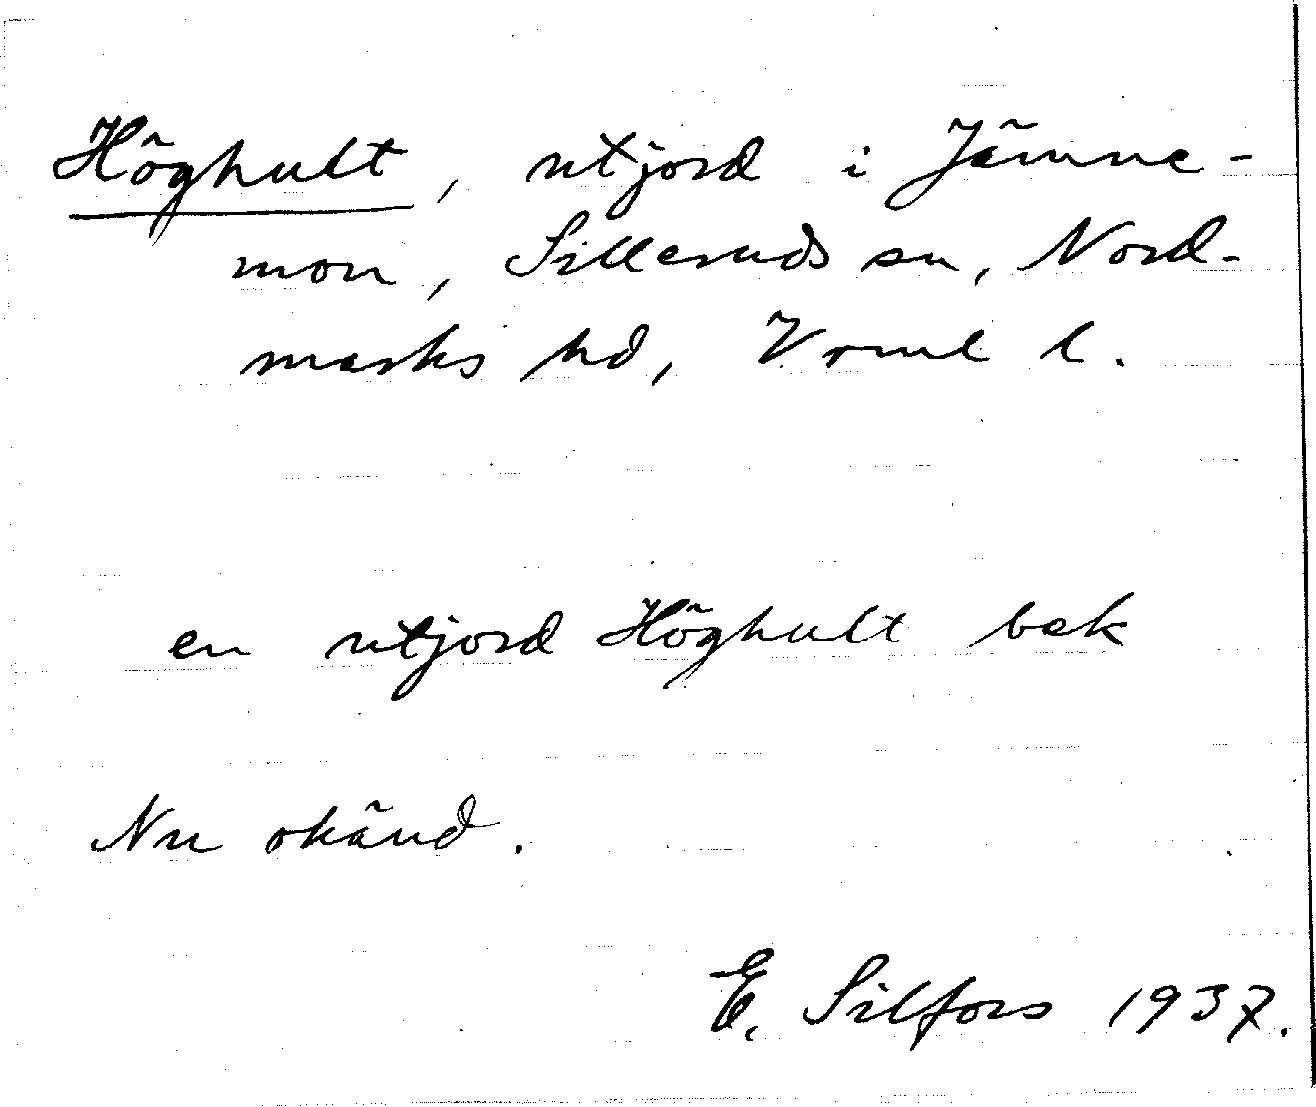 Höghult, utjord i Jämne-
mon, Silleruds sn, Nord-
marks hd, Vrml l.
en utjord Höghult bek
Nu okänd.
E. Silfors 1937.